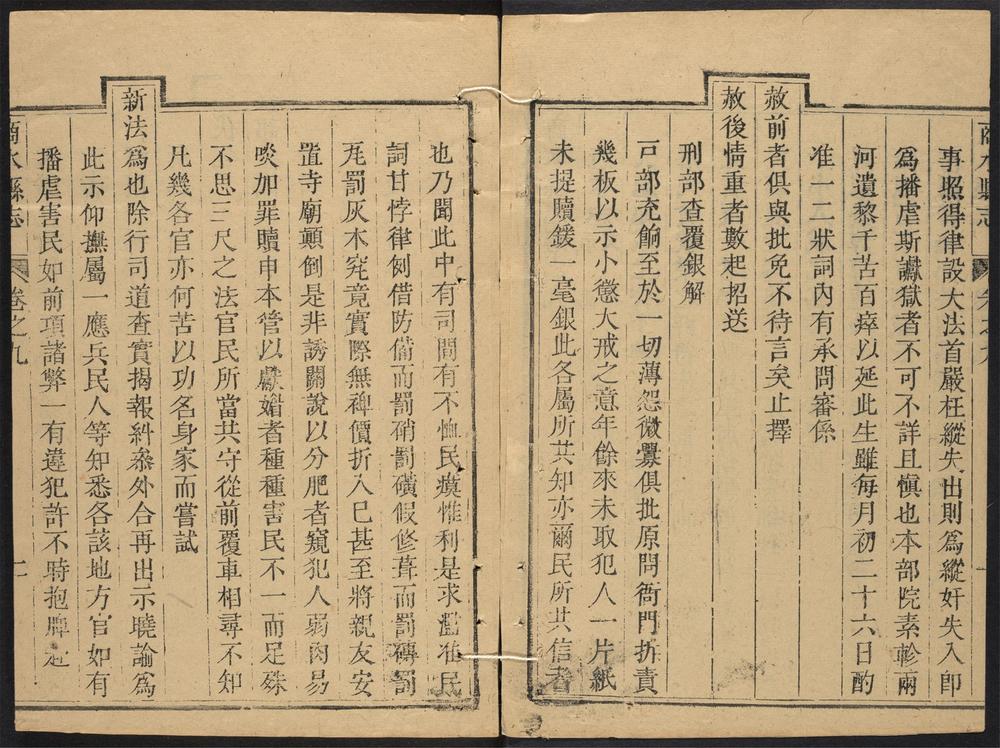 商水縣志
卷之九
一
事照得律設大法首嚴枉縱失出則爲縱奸失入卽
爲播虐斯讞獄者不可不詳且愼也本部院素軫兩
河遺黎千苦百瘁以延此生雖每月初二十六日酌
准一二狀詞內有承問審係
赦前者俱與批免不待言矣止擇
赦後情重者數起招送
刑部查覆銀解
戸部充餉至於一切薄怨微釁俱批原問衙門折責
幾板以示小懲大戒之意年餘來未取犯人一片紙
未提贖鍰一毫銀此各屬所共知亦爾民所共信者
也乃聞此中有司間有不恤民瘼惟利是求濫准民
詞甘悖律例借防備而罰硝罰磺假修葺而罰磚罰
瓦罰灰木究竟實際無裨價折入巳甚至將親友安
置寺廟顚倒是非誘關說以分肥者窺犯人弱肉易
啖加罪贖申本管以獻媚者種種害民不一而足殊
不思三尺之法官民所當共守從前覆車相尋不知
凡幾各官亦何苦以功名身家而嘗試
新法爲也除行司道查實揭報糾叅外合再出示曉諭爲
此示仰撫屬一應兵民人等知悉各該地方官如有
播虐害民如前項諸弊一有違犯許不時抱牌赴
商水縣志
卷之九
二